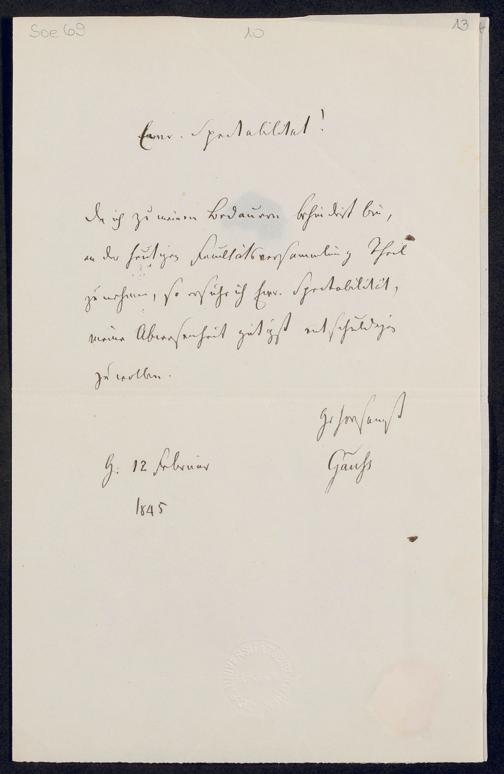 Soe 69
10
13
Ewr. Spectabilität!
Da ich zu meinem Bedauern behindert bin,
an der heutigen Facultätsversammlung Theil
zu nehmen, so ersuche ich Ewr. Spectabilität,
meine Abwesenheit gütigst entschuldigen
zu wollen.
Gehorsamst
Gauß
G. 12 Februar
1845